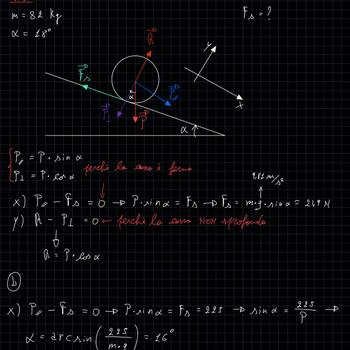 m = 82 Kg
α = 18°
Fs = ?
R
y
Fs
α
P∥
P⊥
P
x
α
P∥ = P · sin α
P⊥ = P · cos α
perché la cassa è ferma
9,81 m/s²
x) P∥ - Fs = 0 → P · sin α = Fs → Fs = m·g · sin α = 249 N
y) R - P⊥ = 0 ← perché la cassa NON sprofonda
R = P · cos α
b
x) P∥ - Fs = 0 → P · sin α = Fs = 225 → sin α = 225/P
α = arcsin(225/m·g) = 16°